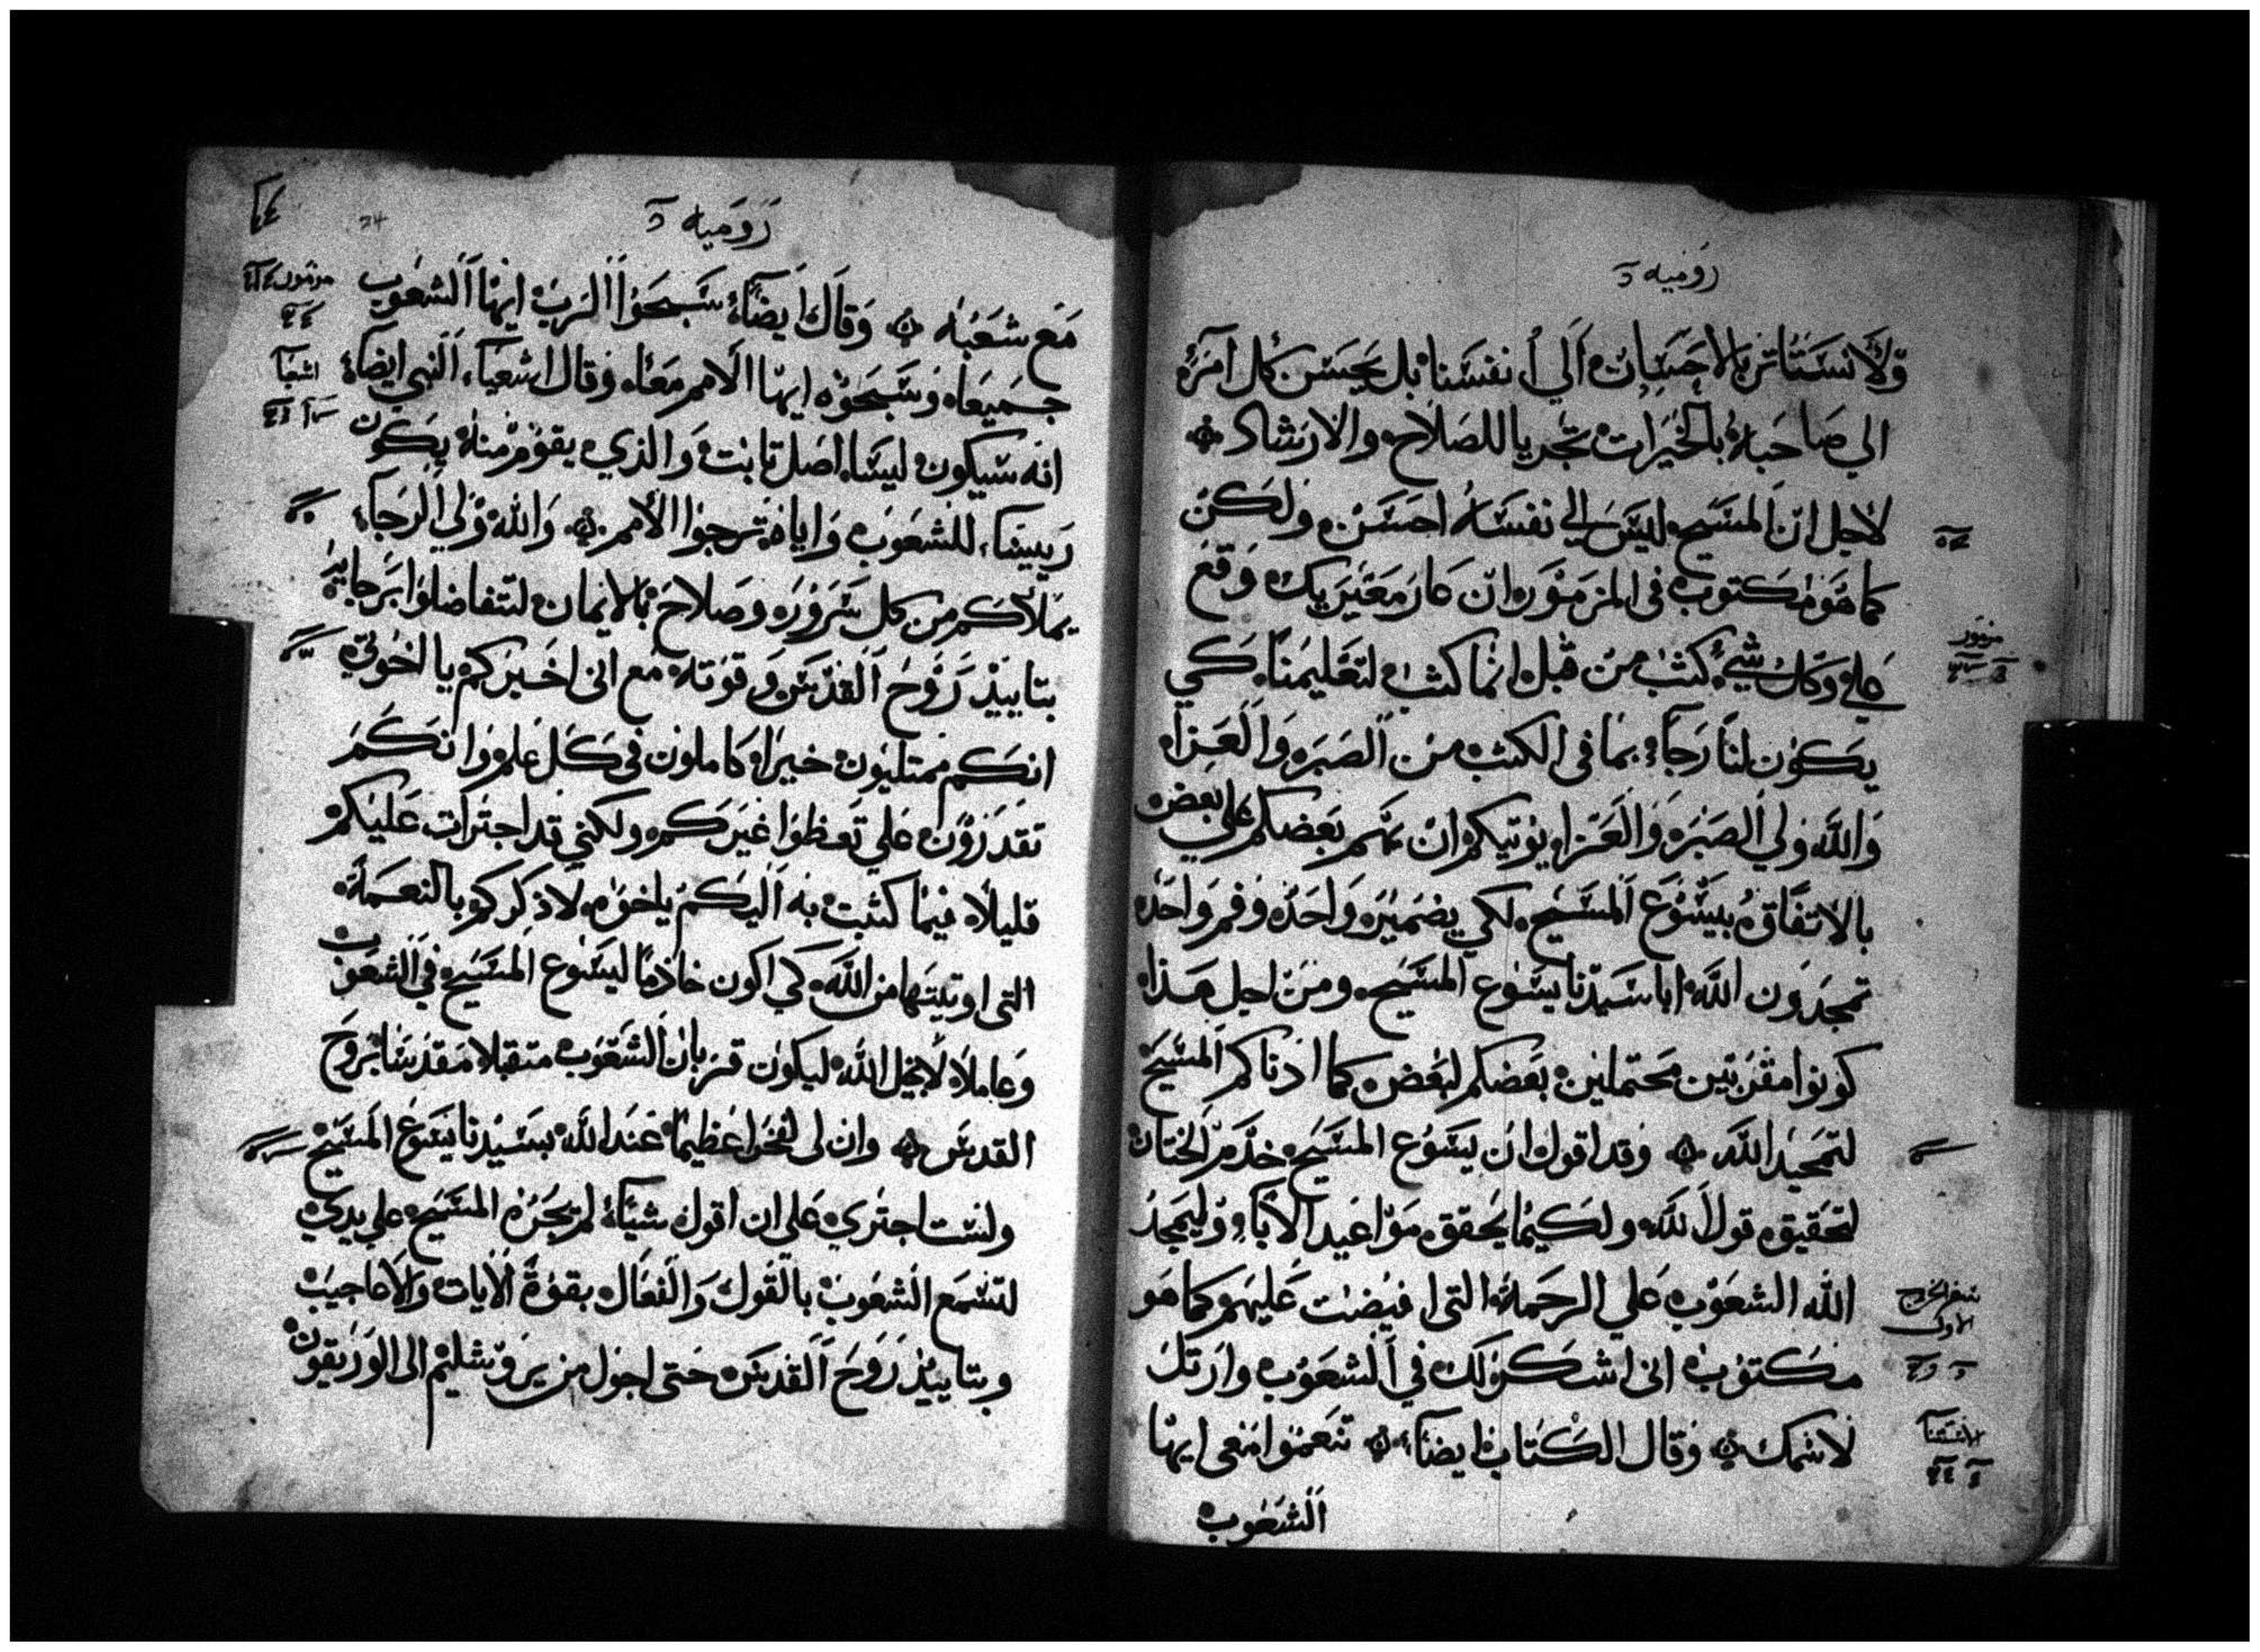 رومیه
ولا نستاثر بالاحسان الي انفسنا بل يحسن كل امرء
الي صاحبه بالخيرات تجريا للصلاح والارشاد
لاجل ان المسيح ليس الي نفسه احسن ولكن
كما هو مكتوب في المزمور ان عار معيريك وقع
علي وكل شيء كتب من قبل انما كتب لتعليمنا كي
يكون لنا رجاء بما في الكتب من الصبر والعزاء
والله ولي الصبر والعزاء يوتيكم ان يهم بعضكم علي بعض
بالاتفاق بيسوع المسيح لكي بضمير واحد وفم واحد
تمجدون الله ابا سيدنا يسوع المسيح ومن اجل هذا
كونوا مقربين محتملين بعضكم لبعض كما ادناكم المسيح
لتمجيد الله وقد اقول ان يسوع المسيح خدم الختان
لتحقيق قول الله ولكيما يحقق مواعيد الاباء وليمجد
الله الشعوب علي الرحمة التي افيضت عليهم كما هو
مكتوب اني اشكر لك في الشعوب وارتل
لاسمك وقال الكتاب ايضا تنعموا معي ايها
الشعوب
مزمور
سفر الخروج
الاول
الاستثنا
روميه
34
مع شعبه وقال ايضا سبحوا الرب ايها الشعوب
جميعا وسبحوه ايها الامم معا وقال اشعيا النبي ايضا
انه سيكون ليسا اصل ثابت والذي يقوم منه يكون
ربيسا للشعوب واياه ترجوا الامم والله ولي الرجاء
يملاكم من كل سرور وصلاح بالايمان لتتفاضلوا برجايه
بتاييد روح القدس وقوته مع اني اخبركم يا اخوتي
انكم ممتليون خيرا كاملون في كل علم وانكم
تقدرون علي تعظوا غيركم ولكني قد اجترات عليكم
قليلا فيما كتبت به اليكم ياخوه لاذكركم بالنعمة
التي اوتيتها من الله كي اكون خادما ليسوع المسيح في الشعوب
وعاملا لانجيل الله ليكون قربان الشعوب متقبلا مقدسا بروح
القدس وان لي لفخرا عظيما عند الله بسيدنا يسوع المسيح
ولست اجتري علي ان اقول شياء لم يجره المسيح علي يدي
لتسمع الشعوب بالقول والفعال بقوة الايات والاعاجيب
وبتاييد روح القدس حتي اجول من يروشليم الي الوريقون
اشعيا